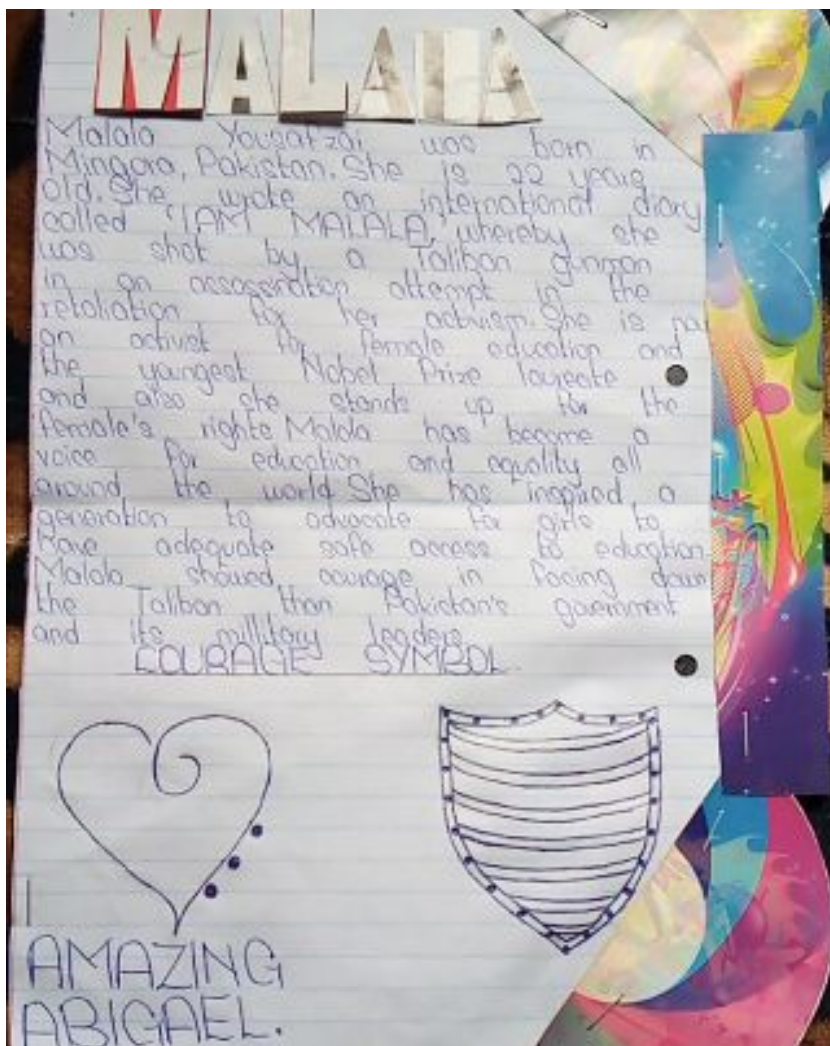 MALALA
Malala Yousafzai was born in
Mingora, Pakistan. She is 22 years
old. She wrote an international diary
called "I AM MALALA," whereby she
was shot by a Taliban gunman
in an assassination attempt in the
retaliation for her activism. She is now
an activist for female education and
the youngest Nobel Prize laureate
and also she stands up for the
female's rights. Malala has become a
voice for education and equality all
around the world. She has inspired a
generation to advocate for girls to
have adequate safe access to education.
Malala showed courage in facing down
the Taliban than Pakistan's goverment
and its millitary leaders
COURAGE SYMBOL.
AMAZING
ABIGAEL.